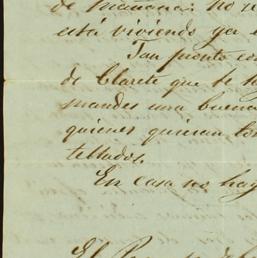 de manana: no
está viviendo ya
Tan pronto
de Clarete que te
mandes una buena
quienes quieran
tellados.
En casa no hay
El